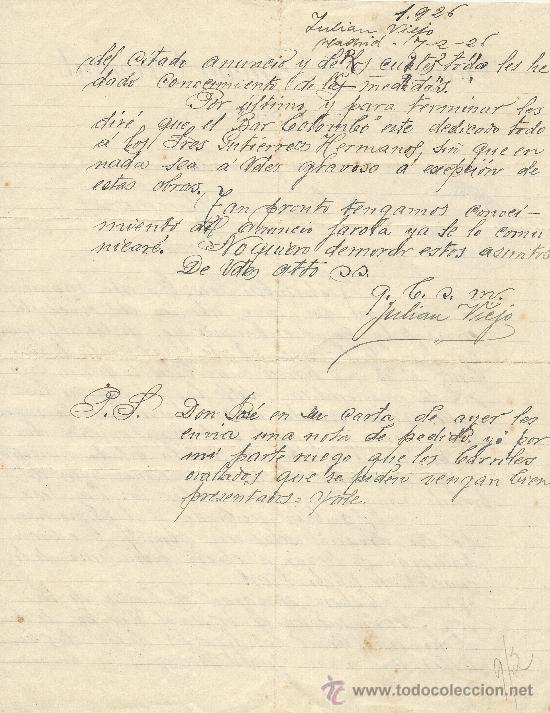 1.926
Julian Viejo
Madrid - 17-2-26
del citado anuncio y de los cuales todos les he
dado conocimiento de las medidas.
Por último, y para terminar les
diré que el Bar Colombo este dedicado todo
a los Tres Gutierrez Hermanos, sin que en
nada sea á Vdes gravoso á exepción de
estas obras.
Tan pronto tengamos conoci-
miento del anuncio farola ya se lo comu
nicaré. No quiero demorar estos asuntos
De Vdes atto s s.
q. b. s. m.
Julian Viejo
P. S. Don José en su carta de ayer les
envia una nota de pedido, yo por
mi parte ruego que los barriles
que se piden vengan bien
presentados = Vale.
9/3
www.todocoleccion.net